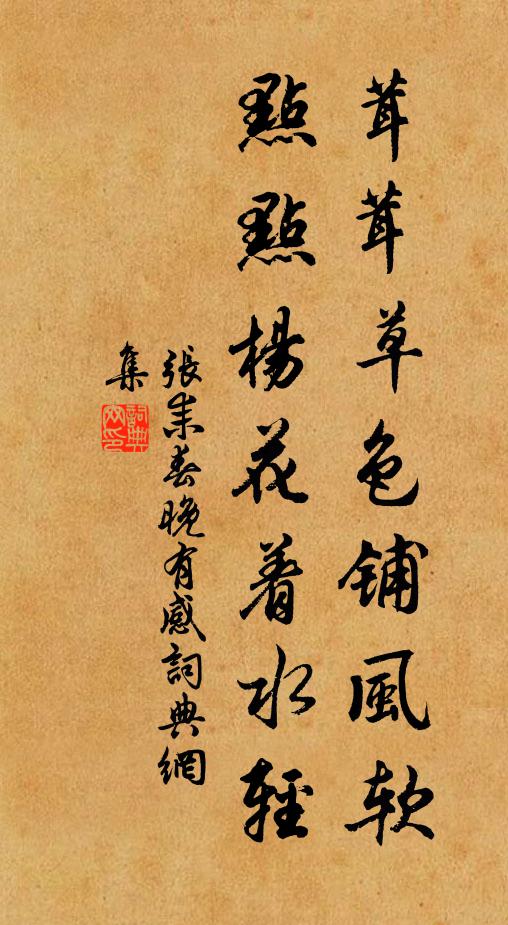 茸茸草色鋪風軟
點點楊花着水輕
張耒春晚有感詞典網
集
詞典
网印